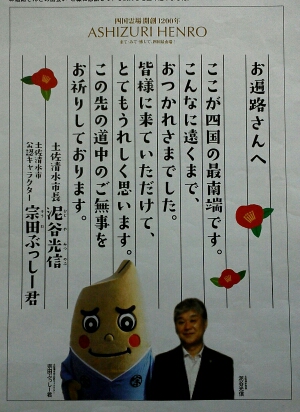 四国霊場開創1200年
ASHIZURI HENRO
お遍路さんへ
ここが四国の最南端です。
こんなに遠くまで、
おつかれさまでした。
皆様に来ていただけて、
とてもうれしく思います。
この先の道中のご無事を
お祈りしております。
土佐清水市長 泥谷光信
土佐清水市
公認キャラクター 宗田ぶっしー君
泥谷光信